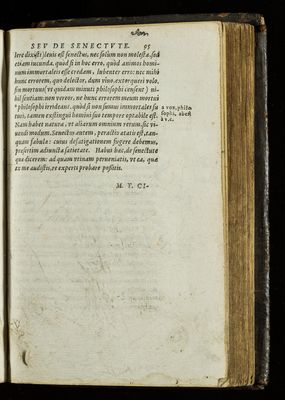 SEV DE SENECTVTE. 95
lere dixisti) leuis est senectus, nec solum non molesta, sed
etiam iucunda. quòd si in hoc erro, quòd animos homi-
num immortaleis esse credam, lubenter erro: nec mihi
hunc errorem, quo delector, dum viuo, extorqueri volo.
sin mortuus( vt quidam minuti philosophi censent ) ni-
hil sentiam: non vereor, ne hunc errorem meum mortui
a philosophi irrideant. quòd si non sumus immortales fu
turi, tamen exstingui homini suo tempore optabile est.
Nam habet natura, vt aliarum omnium rerum, sic vi-
uendi modum. Senectus autem, peractio ætatis est, tan-
quam fabulæ: cuius defatigationem fugere debemus,
præsertim adiuncta satietate. Habui hæc, de senectute
quæ dicerem: ad quam vtinam perueniatis, vt ea, quæ
ex me audistis, re experti probare possitis.
a vox, philo
sophi, abest
à v.c.
M. T. CI-